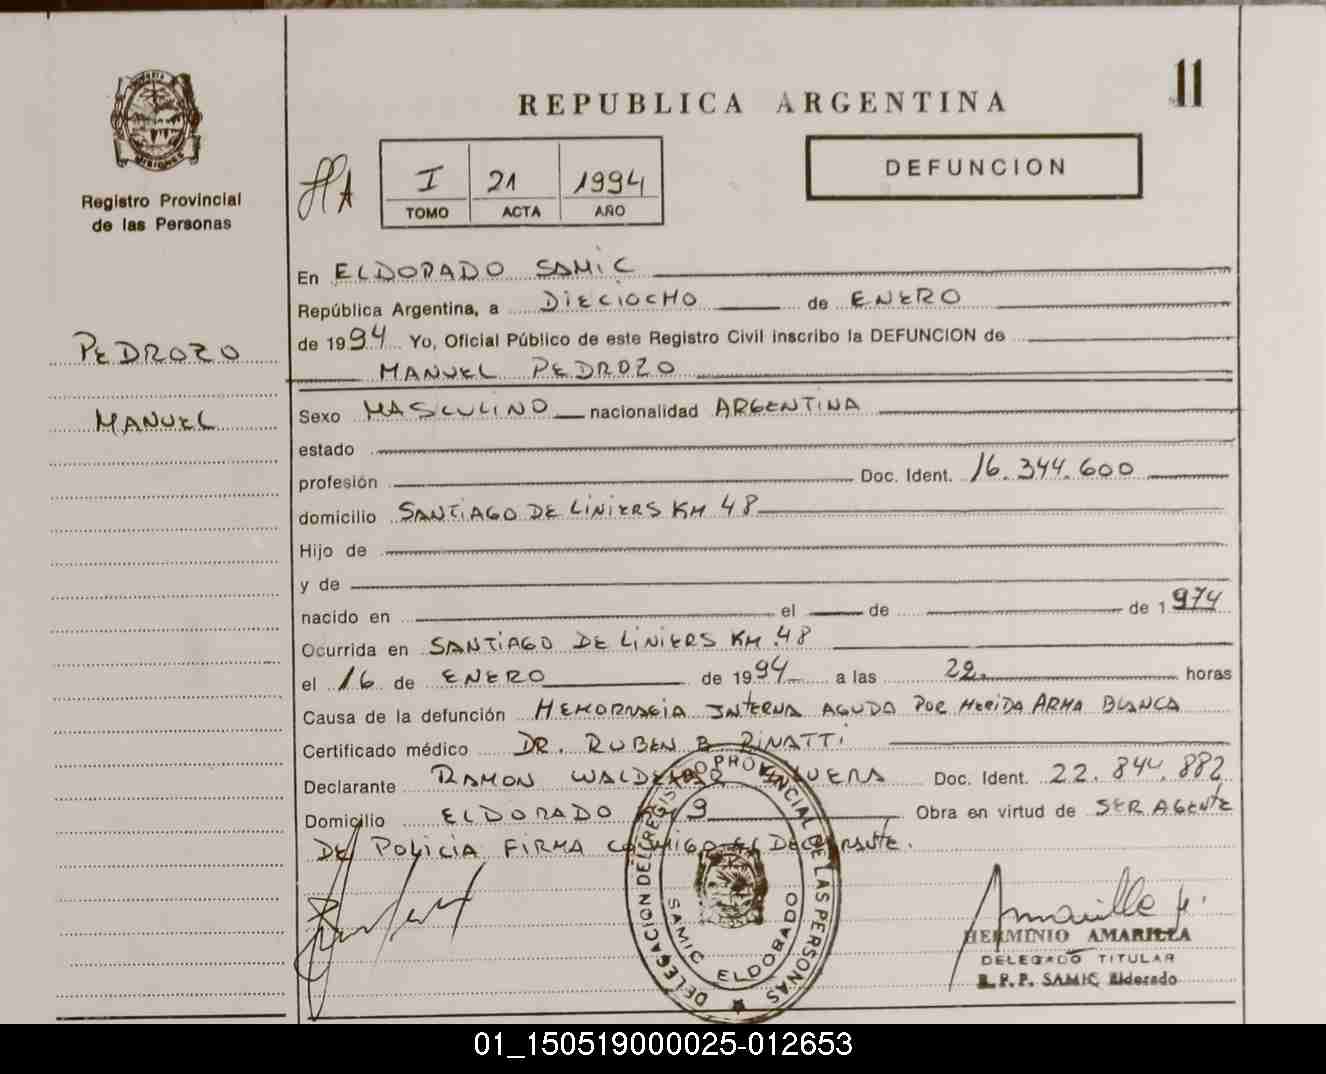 11
REPUBLICA ARGENTINA
DEFUNCION
I 21 1994
TOMO ACTA AÑO
PROVINCIA
MISIONES
Registro Provincial
de las Personas
PEDROZO
MANUEL
En ELDORADO SAMIC
República Argentina, a DIECIOCHO de ENERO
de 1994 Yo, Oficial Público de este Registro Civil inscribo la DEFUNCION de
MANUEL PEDROZO
Sexo MASCULINO nacionalidad ARGENTINA
estado
profesión Doc. Ident. 16.344.600
domicilio SANTIAGO DE LINIERS KM 48
Hijo de
y de
nacido en el de de 1974
Ocurrida en SANTIAGO DE LINIERS KM 48
el 16 de ENERO de 1994 a las 22. horas
Causa de la defunción HEMORRAGIA INTERNA AGUDA POR HERIDA ARMA BLANCA
Certificado médico DR. RUBEN B RINATTI
Declarante RAMON Doc. Ident. 22.844.882
Domicilio ELDORADO 9 Obra en virtud de SER AGENTE
DE POLICIA FIRMA CONMIGO EL DECLARANTE.
DELEGACION DEL REGISTRO PROVINCIAL DE LAS PERSONAS
SAMIC ELDORADO
Amarilla H.
HERMINIO AMARILLA
DELEGADO TITULAR
R.P.P. SAMIC Eldorado
01_150519000025-012653